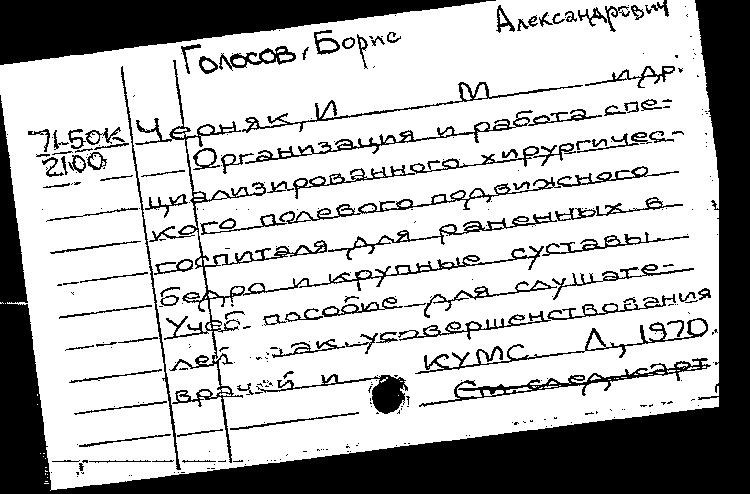 Голосов, Борис Александрович
71-50К Черняк, И М и др.
2100 Организация и работа спе-
циализированного хирургичес-
кого полевого подвижного
госпиталя для раненных в
бедро и крупные суставы.
Учеб. пособие для слушате-
лей фак. усовершенствования
врачей и КУМС. Л., 1970.
См. след. карт.